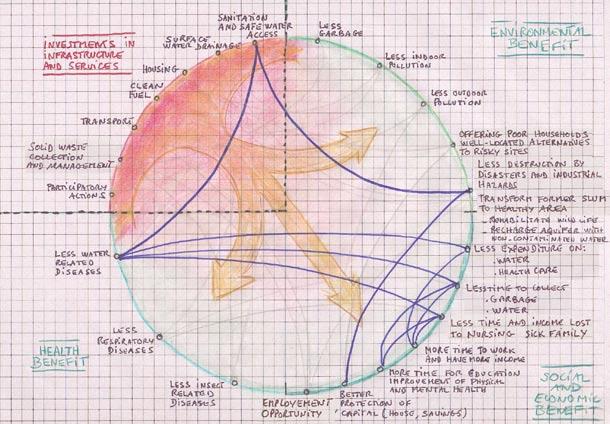 INVESTMENTS IN
INFRASTRUCTURE
AND SERVICES
SANITATION AND SAFE WATER
ACCESS
SURFACE
WATER DRAINAGE
HOUSING
CLEAN
FUEL
TRANSPORT
SOLID WASTE
COLLECTION
AND MANAGEMENT
PARTICIPATORY
ACTIONS
ENVIRONMENTAL
BENEFIT
LESS
GARBAGE
LESS INDOOR
POLLUTION
LESS OUTDOOR
POLLUTION
OFFERING POOR HOUSEHOLDS
WELL-LOCATED ALTERNATIVES
TO RISKY SITES
LESS DESTRUCTION BY
DISASTERS AND INDUSTRIAL
HAZARDS
TRANSFORM FORMER SLUM
TO HEALTHY AREA
- REHABILITATE WILD LIFE
- RECHARGE AQUIFER WITH
NON-CONTAMINATED WATER
LESS EXPENDITURE ON:
- WATER
- HEALTH CARE
LESS TIME TO COLLECT
- GARBAGE
- WATER
LESS TIME AND INCOME LOST
TO NURSING SICK FAMILY
MORE TIME TO WORK
AND HAVE MORE INCOME
MORE TIME FOR EDUCATION
IMPROVEMENT OF PHYSICAL
AND MENTAL HEALTH
BETTER
PROTECTION OF
CAPITAL (HOUSE, SAVINGS)
EMPLOYEMENT
OPPORTUNITY
SOCIAL
AND
ECONOMIC
BENEFIT
LESS WATER
RELATED
DISEASES
LESS
RESPIRATORY
DISEASES
LESS INSECT
RELATED
DISEASES
HEALTH
BENEFIT